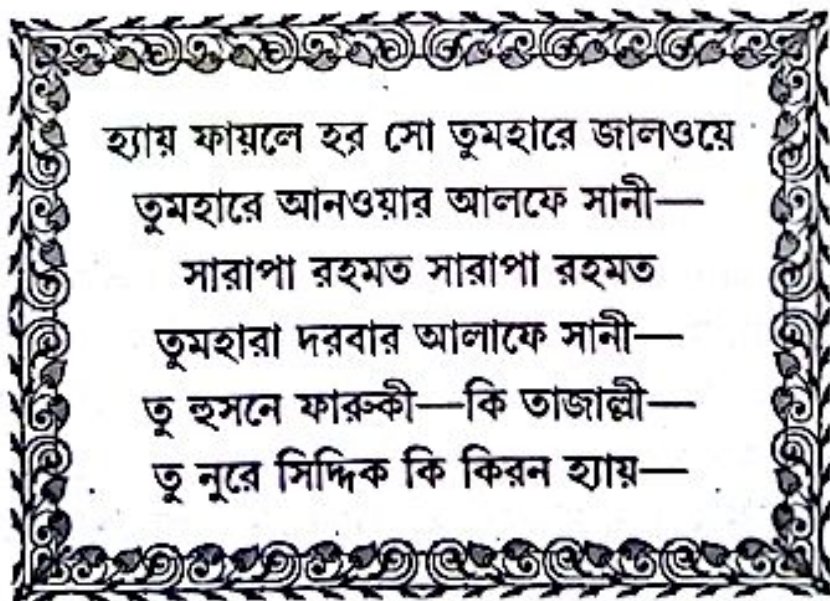 হ্যায় ফায়লে হর সো তুমহারে জালওয়ে
তুমহারে আনওয়ার আলফে সানী—
সারাপা রহমত সারাপা রহমত
তুমহারা দরবার আলাফে সানী—
তু হুসনে ফারুকী—কি তাজাল্লী—
তু নুরে সিদ্দিক কি কিরন হ্যায়—